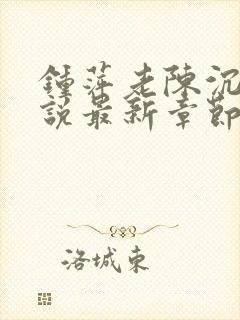 鍾萍老陳沉
說最新章節
洛城東